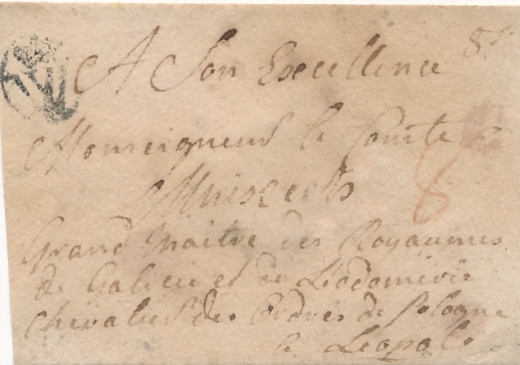 A Son Excellence
Monseigneur le Comte
Mniszech
Grand Maitre des Royaumes
de Galicie et de Lodomerie
Chevalier des Ordres de Pologne
a Leopol
8